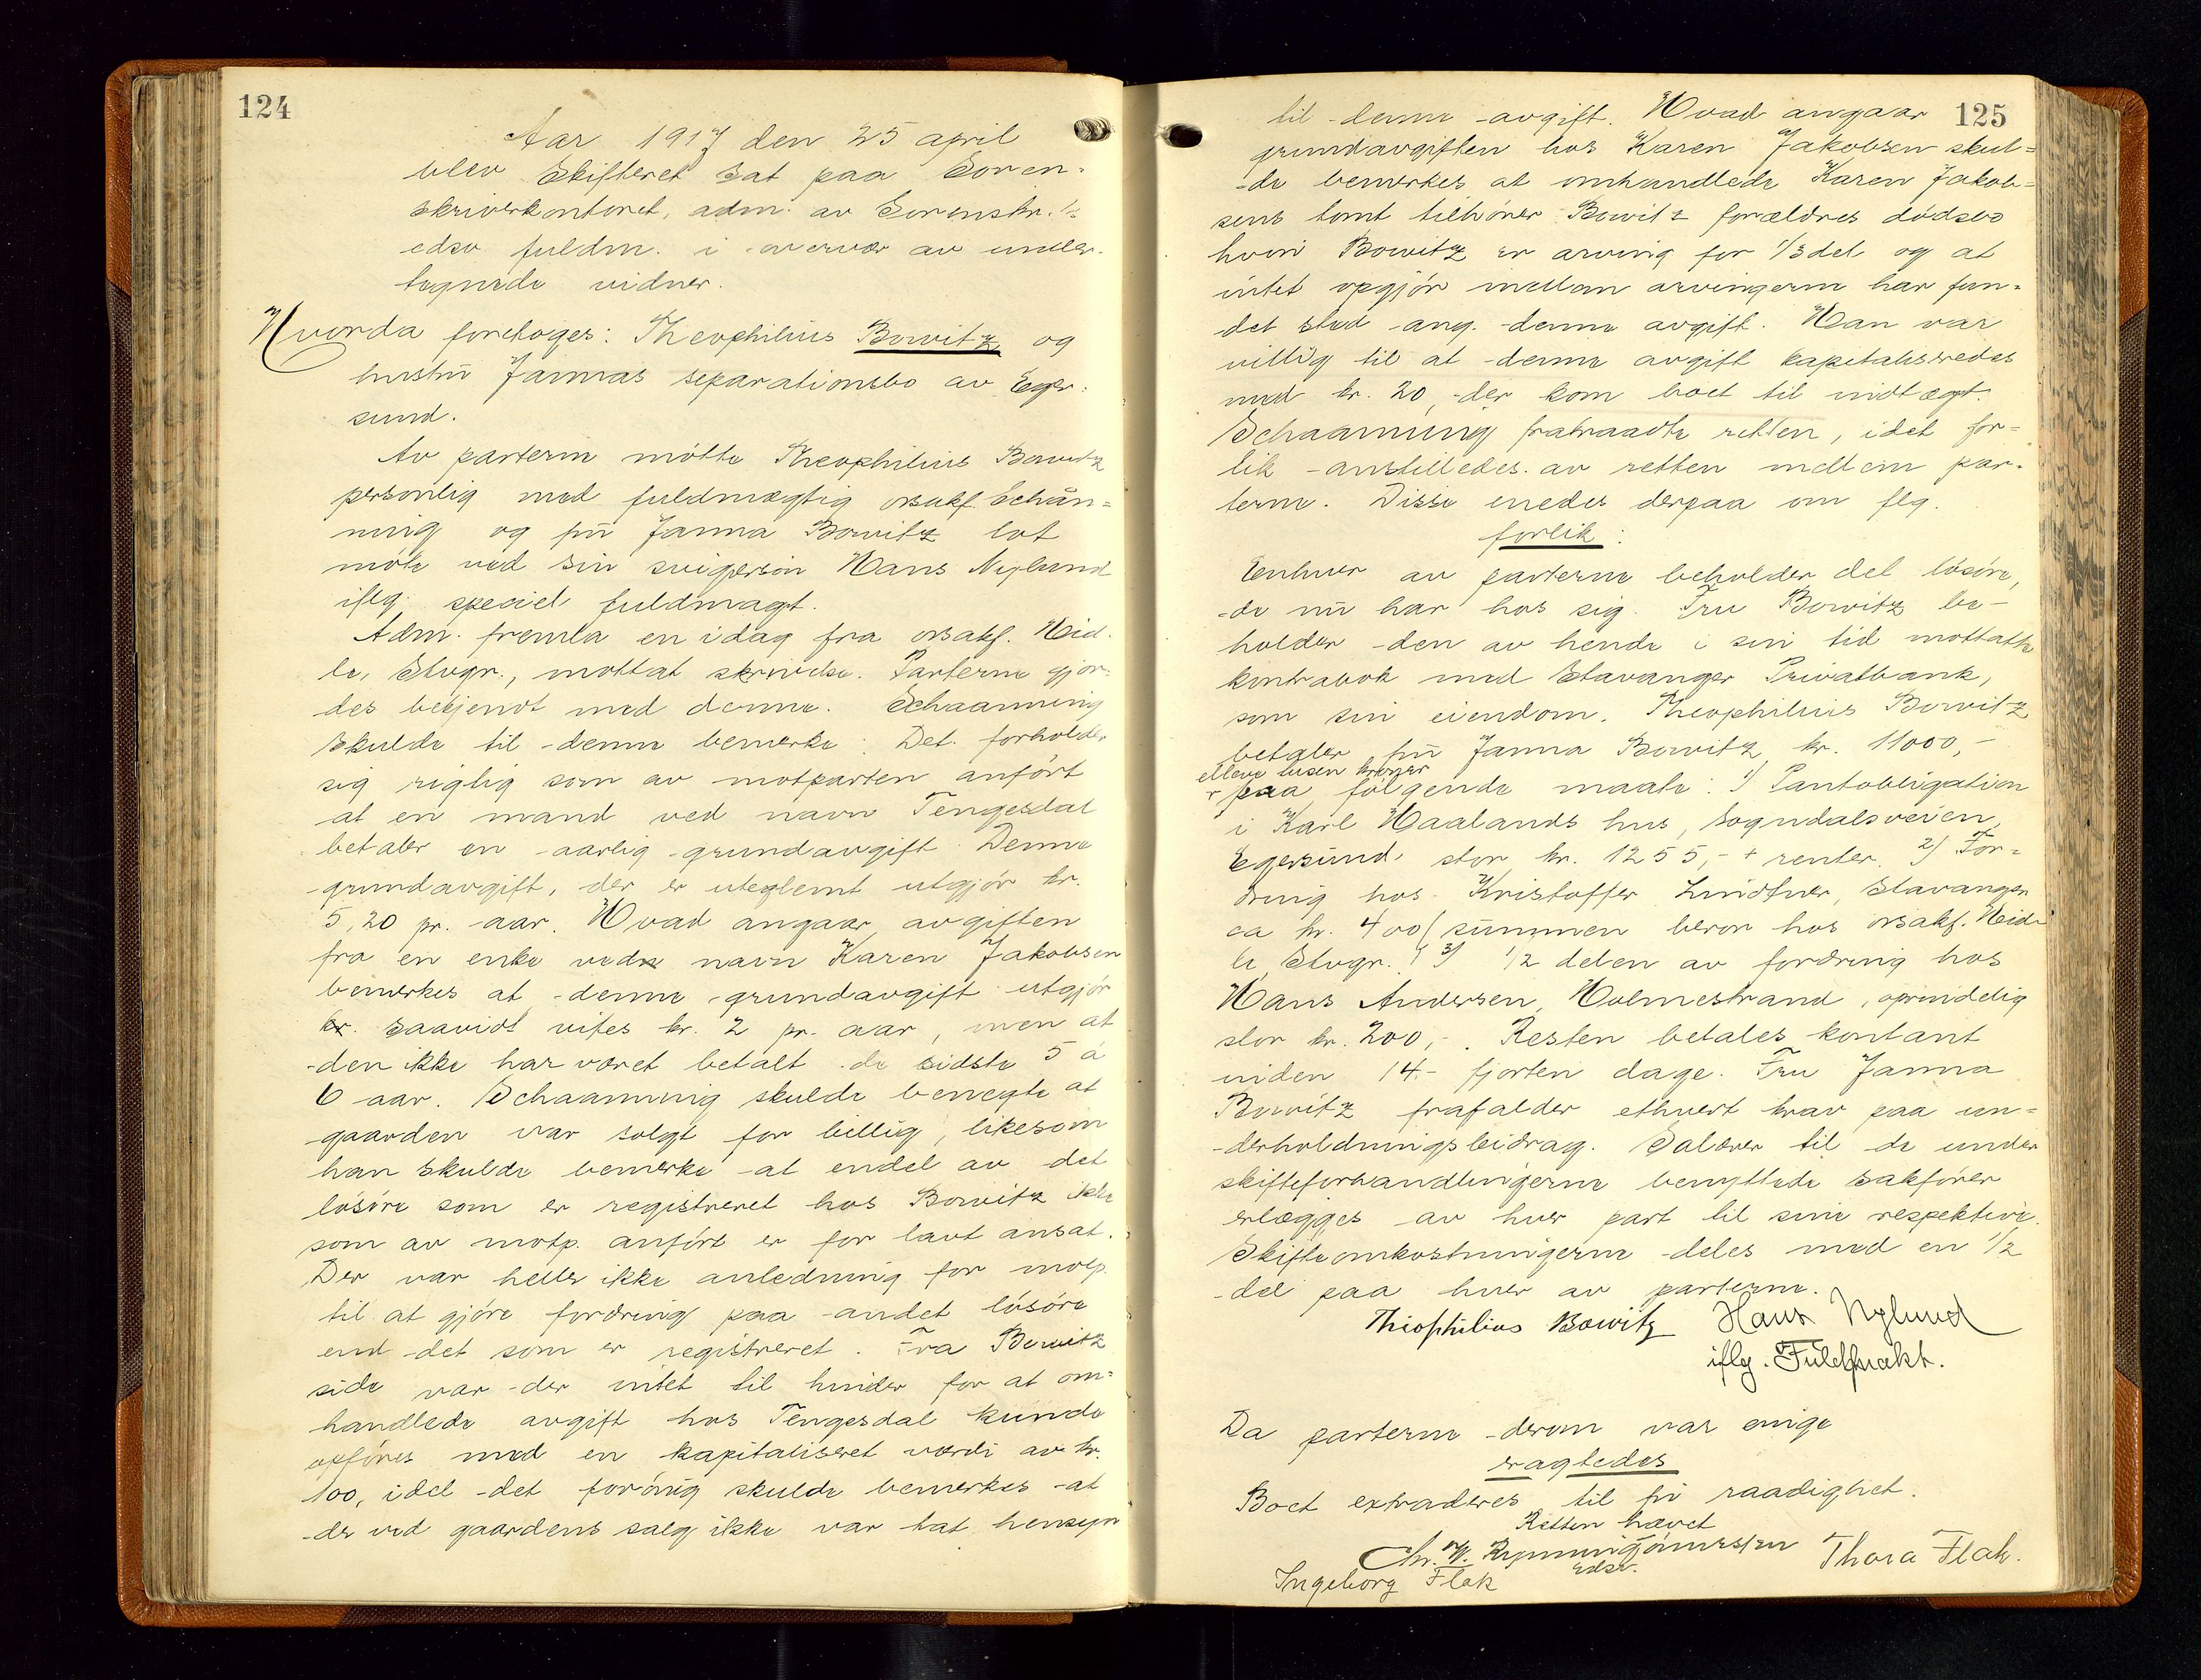 124
Aar 1917 den 25 april
blev Skifteret sat paa Soren-
skriverkontoret, adm. av Sorenskr.'s
edsv. fuldm. i overvær av under-
tegnede vidner.
Hvorda foretoges: Theophilius Bowitz og
hustru Jannas separationsbo av Eger-
sund.
Av parterne mötte Theophilius Bowitz
personlig med fuldmægtig orsakf. Schån-
ning og fru Janna Bowitz lot
möte ved sin svigersön Hans Nylund
iflg. speciel fuldmagt.
Adm. fremla en idag fra orsakf. Heid-
le, Stvgr., mottat skrivelse. Parterne gjor-
des bekjendt med denne. Schaanning
skulde til denne bemerke: Det forholder
sig rigtig som av motparten anfört
at en mand ved navn Tengesdal
betaler en aarlig grundavgift. Denne
grundavgift, der er uteglemt utgjör kr.
5,20 pr. aar. Hvad angaar avgiften
fra en enke ved navn Karen Jakobsen
bemerkes at denne grundavgift utgjör
kr. saavidt vites kr. 2 pr. aar, men at
den ikke har været betalt de sidste 5 á
6 aar. Schaanning skulde benegte at
gaarden var solgt for billig, likesom
han skulde bemerke at endel av det
lösöre som er registreret hos Bowitz ikke
som av motp. anfört er for lavt ansat.
Der var heller ikke anledning for motp.
til at gjöre fordring paa andet lösöre
end det som er registreret. Fra Bowitz
side var der intet til hinder for at om-
handlede avgift hos Tengesdal kunde
opföres med en kapitaliseret værdi av kr.
100, idet det forövrig skulde bemerkes at
der ved gaardens salg ikke var tat hensyn
125
til denne avgift. Hvad angaar
grundavgiften hos Karen Jakobsen skul-
de bemerkes at omhandlede Karen Jakob-
sens tomt tilhörer Bowitz forældres dödsbo
hvori Bowitz er arving for 1/3 del og at
intet opgjör mellem arvingerne har fun-
det sted ang. denne avgift. Han var
villig til at denne avgift kapitaliseredes
med kr. 20, der kom boet til indtægt.
Schaanning fratraadte retten, idet for-
lik anstilledes av retten mellem par-
terne. Disse enedes derpaa om flg.
forlik:
Enhver av parterne beholder det lösöre,
de nu har hos sig. Fru Bowitz be-
holder den av hende i sin tid mottatte
kontrabok med Stavanger Privatbank,
som sin eiendom. Theophilius Bowitz
betaler fru Janna Bowitz kr. 11000,-
elleve tusen kroner
paa fölgende maate: 1) Pantobligation
i Karl Haalands hus, Sogndalsveien,
Egersund, stor kr. 1255,- + renter. 2) For-
dring hos Kristoffer Lindtner, Stavanger
ca kr. 400 (summen beror hos orsakf. Heid-
le, Stvgr.) 3) 1/2 delen av fordring hos
Hans Andersen, Holmestrand, oprindelig
stor kr. 200,-. Resten betales kontant
inden 14 - fjorten dage. Fru Janna
Bowitz frafalder ethvert krav paa un-
derholdningsbeidrag. Salærer til de under
skifteforhandlingerne benyttede sakförer
erlægges av hver part til sine respektive.
Skifteomkostningerne deles med en 1/2
del paa hver av parterne.
Theophilius Bowitz Hans Nylund
iflg. Fuldmakt.
Da parterne derom var enige
eragtedes
Boet extraderes til fri raadighet.
Retten hævet
Chr. Rynning Tönnessen Thora Flak.
edsv.
Ingeborg Flak